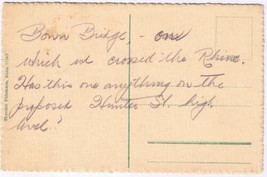 Bonn Bridge, - one
which we crossed the Rhine.
Has this one anything on the
proposed Hunter St. high
level?